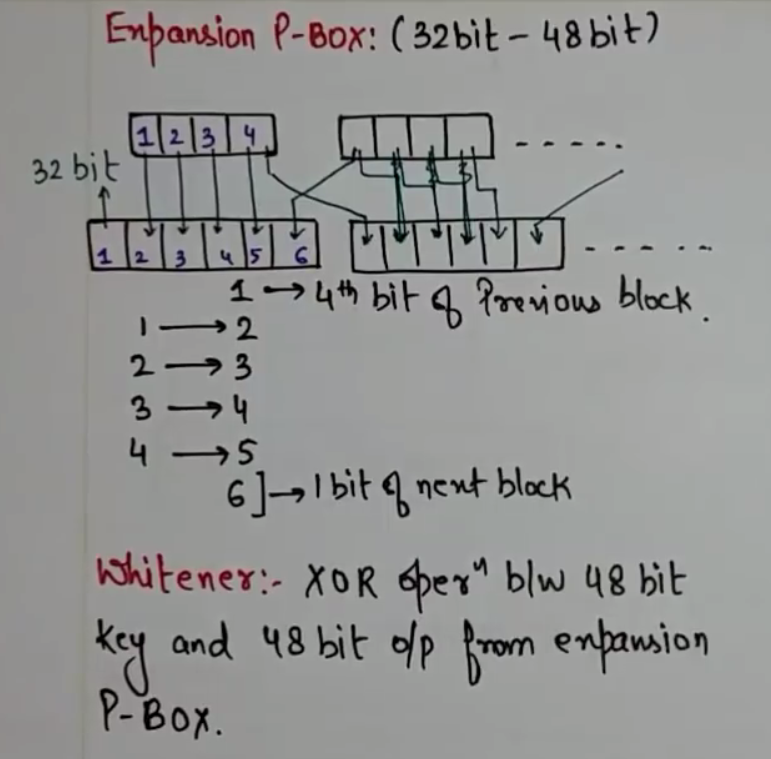 Expansion P-BOX: (32bit - 48bit)
1 2 3 4 - - - - -
32 bit
1 2 3 4 5 6 - - - - - -
1 → 4th bit of Previous block.
1 → 2
2 → 3
3 → 4
4 → 5
6] → 1 bit of next block
Whitener:- XOR operⁿ b/w 48 bit
key and 48 bit o/p from expansion
P-BOX.